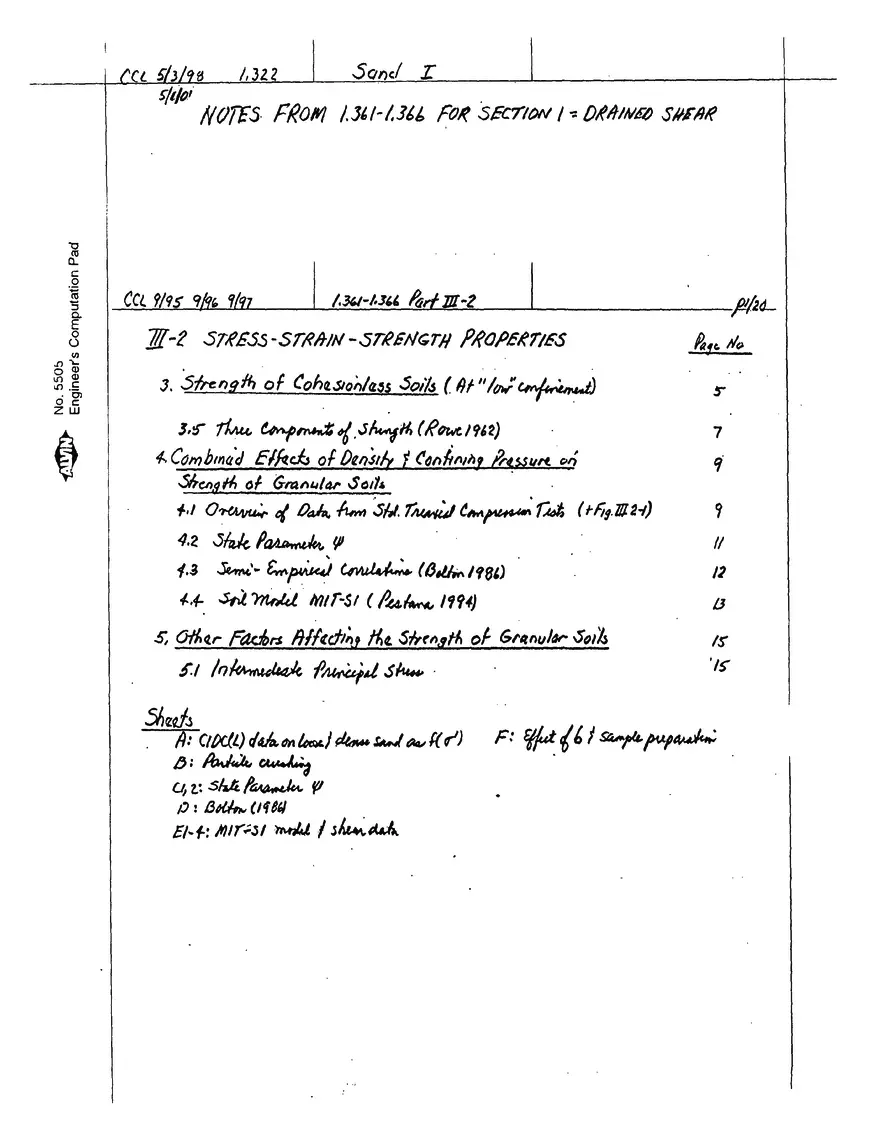 CCL 5/3/98 1.322 Sand I
5/1/01
NOTES FROM 1.361-1.366 FOR SECTION 1 = DRAINED SHEAR
No. 5505
Engineer's Computation Pad
ALVIN
CCL 9/95 9/96 9/97 1.361-1.366 Part III-2 p1/20
III-2 STRESS-STRAIN-STRENGTH PROPERTIES Page No
3. Strength of Cohesionless Soils (At "low" confinement) 5
3.5 Three Components of Strength (Rowe 1962) 7
4. Combined Effects of Density & Confining Pressure on 9
Strength of Granular Soils
4.1 Overview of Data from Std. Triaxial Compression Tests (+Fig. III 2-1) 9
4.2 State Parameter ψ 11
4.3 Semi-Empirical Correlations (Bolton 1986) 12
4.4 Soil Model MIT-S1 (Pestana 1994) 13
5. Other Factors Affecting the Strength of Granular Soils 15
5.1 Intermediate Principal Stress 15
Sheets
A: CIDC(L) data on loose & dense sand as f(σ') F: Effect of b & sample preparation
B: Particle crushing
C1,2: State Parameter ψ
D: Bolton (1986)
E1-4: MIT-S1 model & shear data